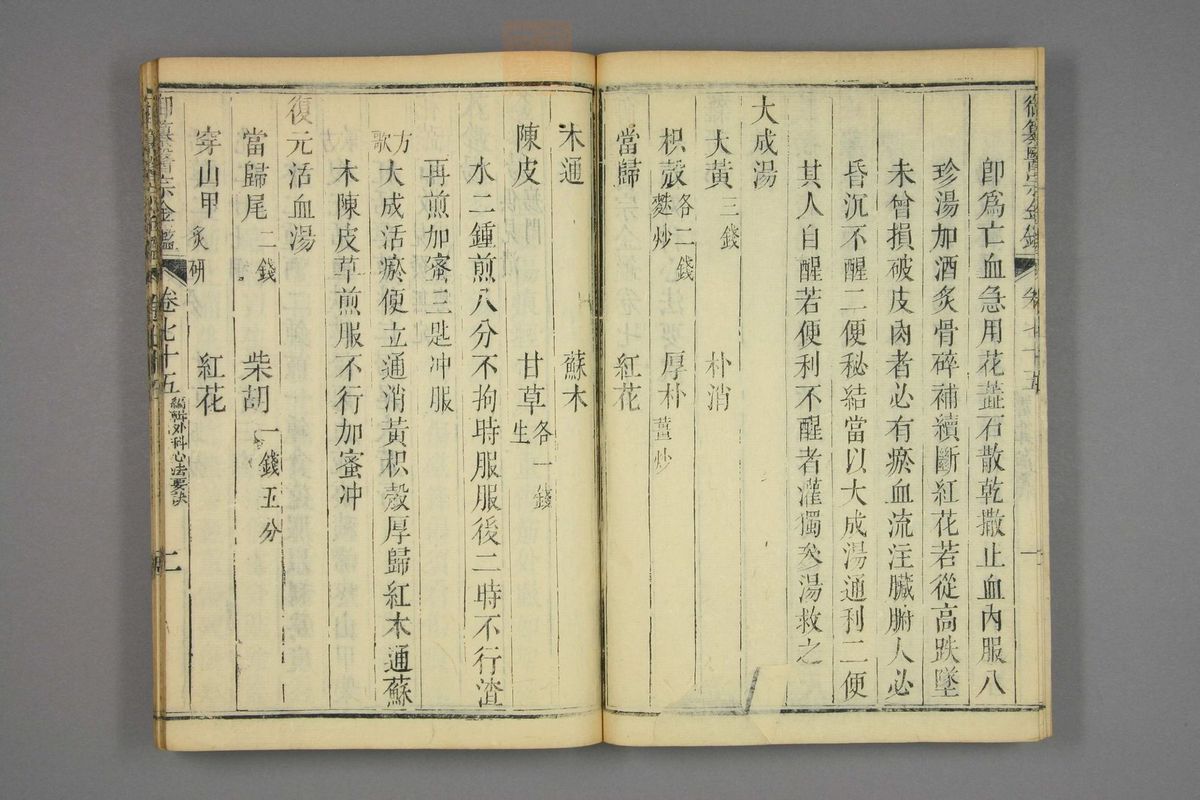 御纂醫宗金鑑 卷七十五 一
卽爲亡血急用花蕋石散乾撒止血內服八
珍湯加酒炙骨碎補續斷紅花若從高跌墜
未曾損破皮肉者必有瘀血流注臟腑人必
昏沉不醒二便秘結當以大成湯通利二便
其人自醒若便利不醒者灌獨參湯救之
大成湯
大黃三錢 朴消
枳殼麩炒各二錢 厚朴薑炒
當歸 紅花
木通 蘇木
陳皮 甘草生各一錢
水二鍾煎八分不拘時服服後二時不行渣
再煎加蜜三匙冲服
方歌 大成活瘀便立通消黃枳殼厚歸紅木通蘇
木陳皮草煎服不行加蜜冲
復元活血湯
當歸尾二錢 柴胡一錢五分
穿山甲炙研 紅花
御纂醫宗金鑑 卷七十五 編輯外科心法要訣 二